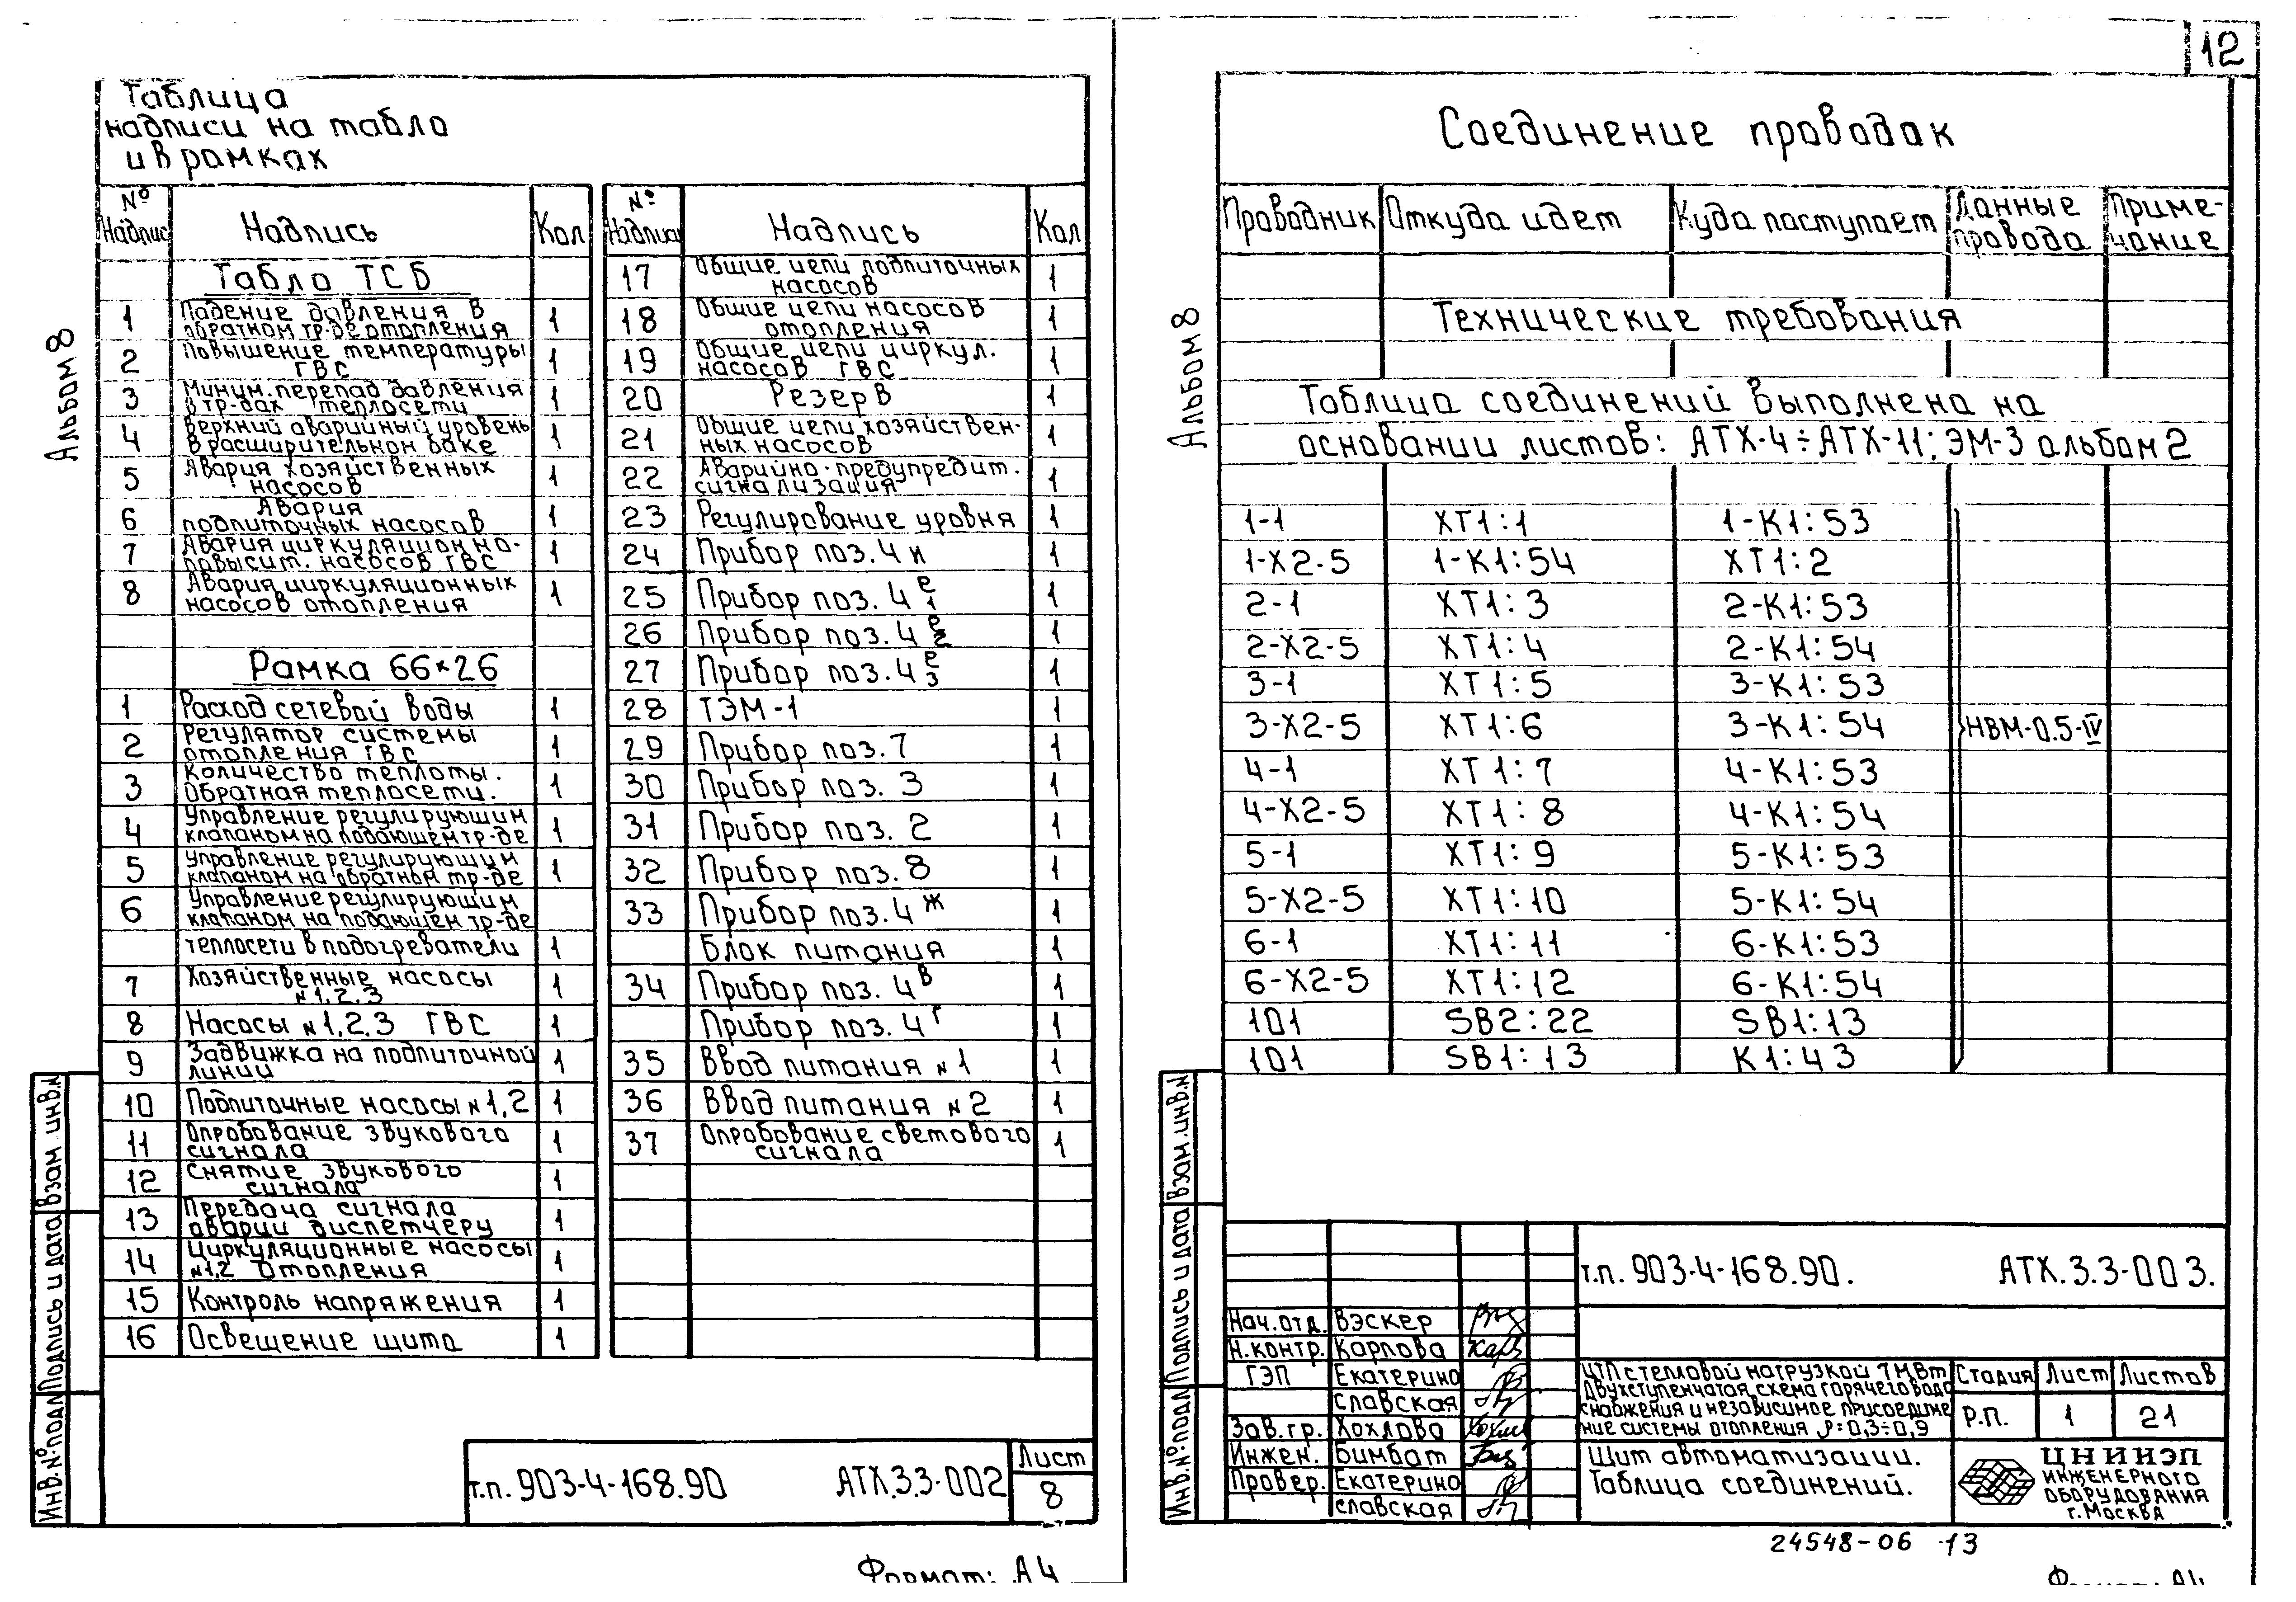 12
Таблица
надписи на табло
и в рамках
Альбом 8
№ Надписи Надпись Кол
Табло ТСБ
1 Падение давления в обратном тр-де отопления 1
2 Повышение температуры ГВС 1
3 Миним. перепад давления в тр-дах теплосети 1
4 Верхний аварийный уровень в расширительном баке 1
5 Авария хозяйственных насосов 1
6 Авария подпиточных насосов 1
7 Авария циркуляционно-повысит. насосов ГВС 1
8 Авария циркуляционных насосов отопления 1
Рамка 66×26
1 Расход сетевой воды 1
2 Регулятор системы отопления ГВС 1
3 Количество теплоты. Обратная теплосети. 1
4 Управление регулирующим клапаном на подающем тр-де 1
5 Управление регулирующим клапаном на обратном тр-де 1
6 Управление регулирующим клапаном на подающем тр-де
теплосети в подогреватели 1
7 Хозяйственные насосы №1,2,3 1
8 Насосы №1,2,3 ГВС 1
9 Задвижка на подпиточной линии 1
10 Подпиточные насосы №1,2 1
11 Опробование звукового сигнала 1
12 Снятие звукового сигнала 1
13 Передача сигнала аварии диспетчеру 1
14 Циркуляционные насосы №1,2 отопления 1
15 Контроль напряжения 1
16 Освещение щита 1
№ Надписи Надпись Кол
17 Общие цепи подпиточных насосов 1
18 Общие цепи насосов отопления 1
19 Общие цепи циркул. насосов ГВС 1
20 Резерв 1
21 Общие цепи хозяйственных насосов 1
22 Аварийно-предупредит. сигнализация 1
23 Регулирование уровня 1
24 Прибор поз. 4и 1
25 Прибор поз. 4 е 1 1
26 Прибор поз. 4 е 2 1
27 Прибор поз. 4 е 3 1
28 ТЭМ-1 1
29 Прибор поз. 7 1
30 Прибор поз. 3 1
31 Прибор поз. 2 1
32 Прибор поз. 8 1
33 Прибор поз. 4 ж 1
Блок питания 1
34 Прибор поз. 4 в 1
Прибор поз. 4 г 1
35 Ввод питания №1 1
36 Ввод питания №2 1
37 Опробование светового сигнала 1
Взам. инв. №
Подпись и дата
Инв. № подл
т.п. 903-4-168.90 АТХ.3.3-002
Лист
8
Формат: А4
Альбом 8
Соединение проводок
Проводник Откуда идет Куда поступает Данные провода Примечание
Технические требования
Таблица соединений выполнена на
основании листов: АТХ-4÷АТХ-11; ЭМ-3 альбом 2
1-1 ХТ1:1 1-К1:53
1-Х2-5 1-К1:54 ХТ1:2
2-1 ХТ1:3 2-К1:53
2-Х2-5 ХТ1:4 2-К1:54
3-1 ХТ1:5 3-К1:53
3-Х2-5 ХТ1:6 3-К1:54 НВМ-0.5-IV
4-1 ХТ1:7 4-К1:53
4-Х2-5 ХТ1:8 4-К1:54
5-1 ХТ1:9 5-К1:53
5-Х2-5 ХТ1:10 5-К1:54
6-1 ХТ1:11 6-К1:53
6-Х2-5 ХТ1:12 6-К1:54
101 SB2:22 SB1:13
101 SB1:13 К1:43
Взам. инв. №
Подпись и дата
Инв. № подл
т.п. 903-4-168.90. АТХ.3.3-003.
Нач. отд. Вэскер
Н. контр. Карпова
ГЭП Екатерино
славская
Зав. гр. Хохлова
Инжен. Бимбат
Провер. Екатерино
славская
ЦТП с тепловой нагрузкой 7 МВт
Двухступенчатая схема горячего водо
снабжения и независимое присоедине
ние системы отопления ρ=0,3÷0,9
Стадия Лист Листов
Р.П. 1 21
Щит автоматизации.
Таблица соединений.
ЦНИИЭП
ИНЖЕНЕРНОГО
ОБОРУДОВАНИЯ
г. Москва
24548-06 13